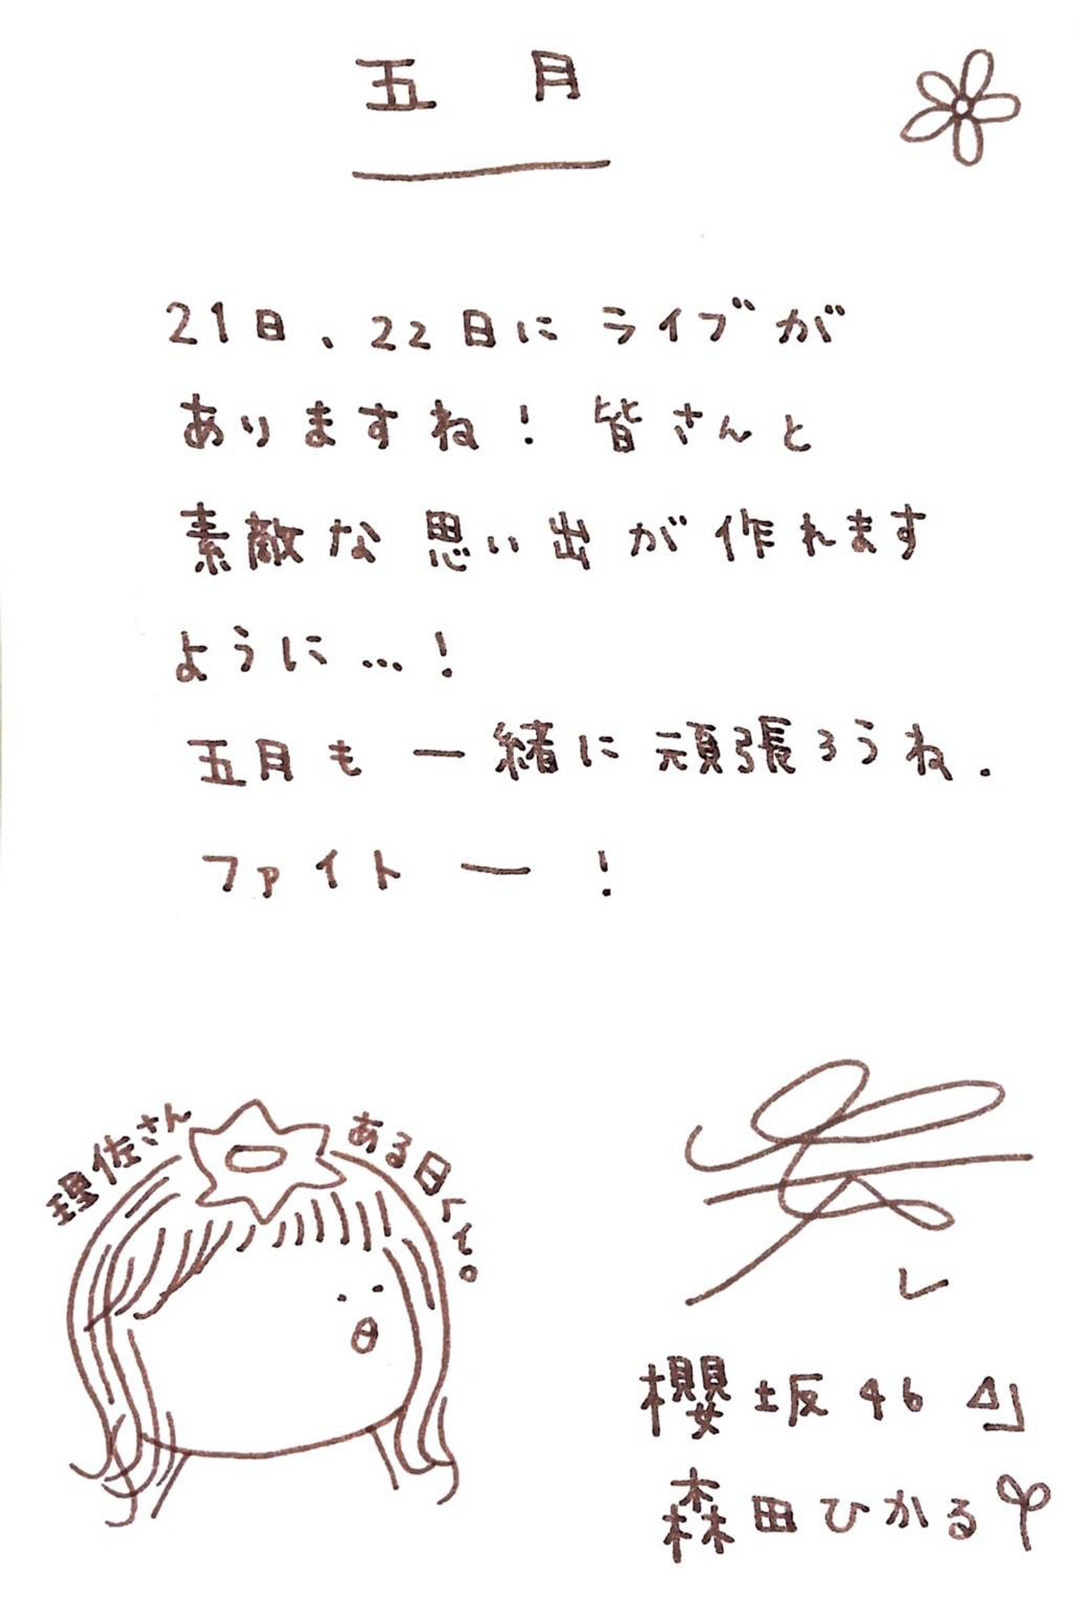 五月
21日、22日にライブが
ありますね！皆さんと
素敵な思い出が作れます
ように…！
五月も一緒に頑張ろうね.
ファイトー！
理佐さん
ある日くて。
櫻坂46
森田ひかる